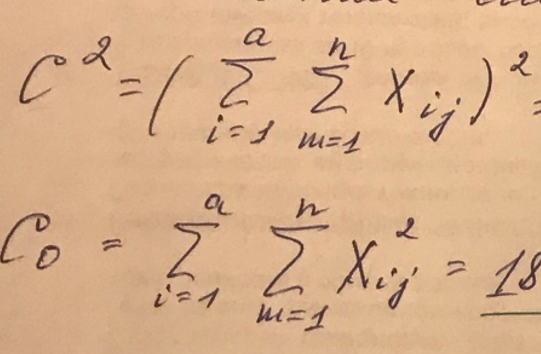 C² = ( ∑_{i=1}^{a} ∑_{m=1}^{n} X_{ij} )² =
C₀ = ∑_{i=1}^{a} ∑_{m=1}^{n} X_{ij}² = 18